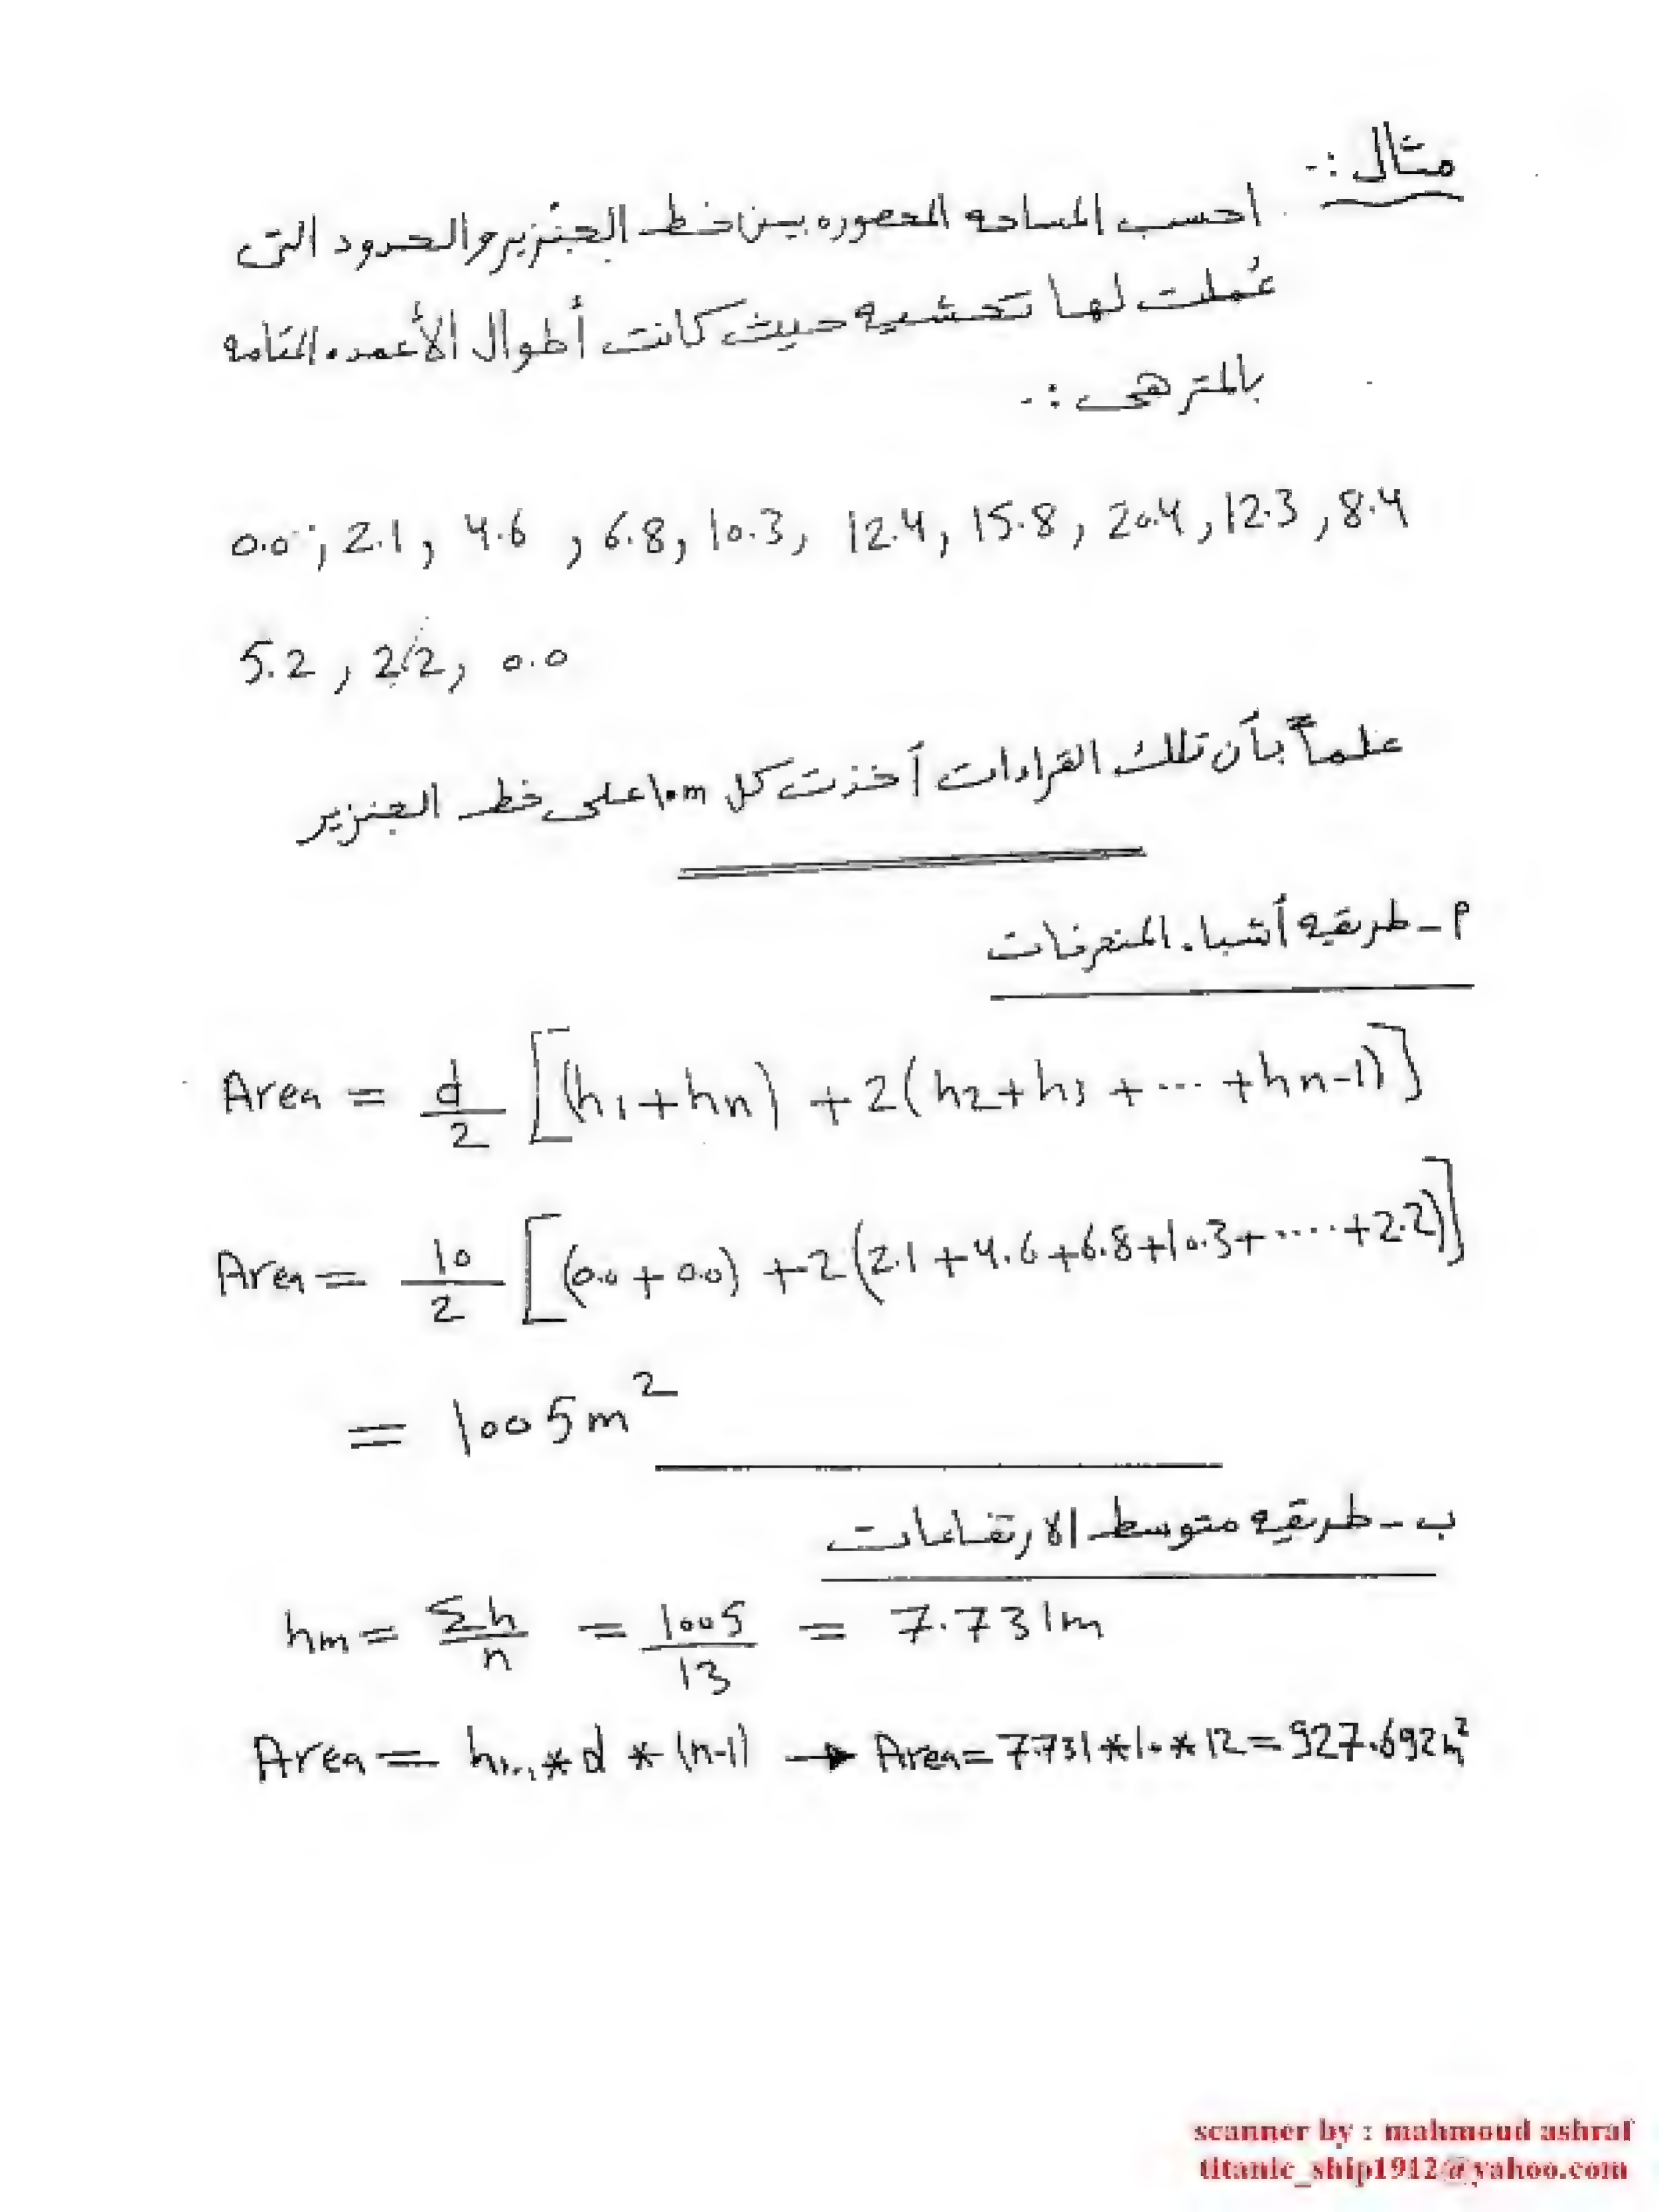 مثال :-
احسب المساحه المحصوره بين خط الجنزير والحدود التى
عُملت لها تحشيه حيث كانت أطوال الأعمده المقامه
بالمتر هى :-
0.0, 2.1, 4.6, 6.8, 10.3, 12.4, 15.8, 20.4, 12.3, 8.4
5.2, 2.2, 0.0
علماً بأن تلك القراءات أخذت كل 10m على خط الجنزير
أ - طريقه أشباه المنحرفات
Area = d/2 [(h1+hn) + 2(h2+h3+...+hn-1)]
Area = 10/2 [(0.0+0.0) + 2(2.1+4.6+6.8+10.3+....+2.2)]
= 1005m²
ب - طريقه متوسط الارتفاعات
hm = Σh/n = 1005/13 = 7.731m
Area = hm * d * (n-1) → Area = 7.731*10*12 = 927.692m²
scanner by : mahmoud ashraf
titanic_ship1912@yahoo.com